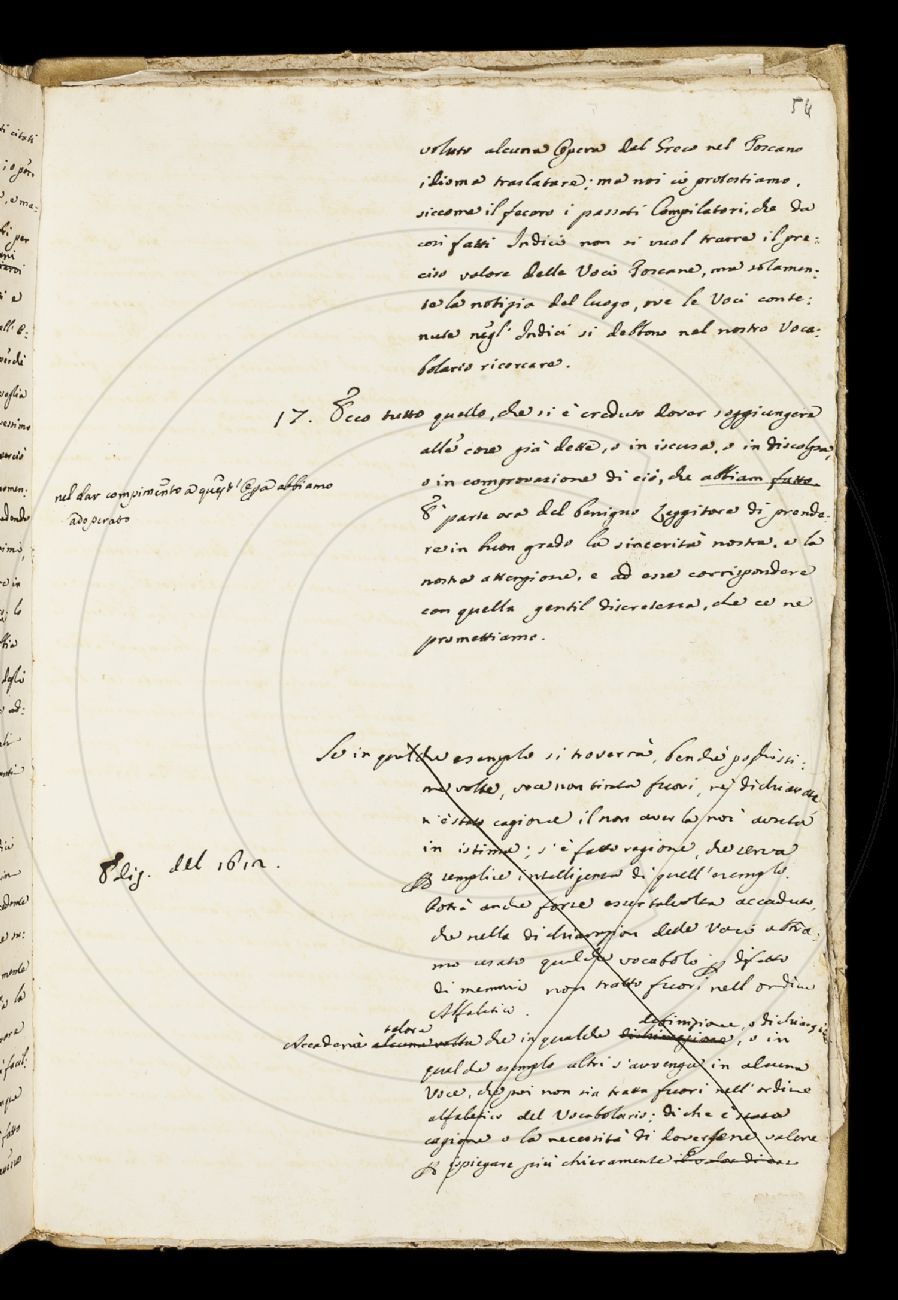 54
voluto alcuna Opera dal Greco nel Toscano
idioma traslatare; ma noi ci protestiamo,
siccome il fecero i passati Compilatori, che da
così fatti Indici non si vuol trarre il pre:
ciso valore delle Voci Toscane, ma solamen:
te la notizia del luogo, ove le Voci conte:
nute negl' Indici si debbono nel nostro Voca:
bolario ricercare.
17. Ecco tutto quello, che si è creduto dover soggiungere
alle cose già dette, o in iscusa, o in discolpa,
o in comprovazione di ciò, che abbiam fatto
nel dar compimento a quest' Opa abbiamo
adoperato
E' parte ora del benigno Leggitore di prende:
re in buon grado la sincerità nostra, e la
nostra attenzione, e ad esse corrispondere
con quella gentil discretezza, che ce ne
promettiamo.
Se in qualche esempio si troverrà, benchè pochissi:
me volte, voce non tirata fuori, nè dichiarata,
n' è stato cagione il non averla noi avuta
in istima; s' è fatto ragione, che serva
semplice intelligenza di quell' esempio.
Potrà anche forse esser talvolta accaduto,
che nella dichiarazion delle Voci abbia:
mo usato qualche vocabolo, difatto
di memoria non tratto fuori nell' ordine
Alfabetico.
Ediz. del 1612.
talora
definizione, o dichiarazione
Accaderà alcuna volta che in qualche dichiarazione, o in
qualche esempio altri s' avvenga in alcuna
Voce, che poi non sia tratta fuori nell' ordine
alfabetico del Vocabolario; di che è stata
cagione o la necessità di doversene valere
spiegare più chiaramente